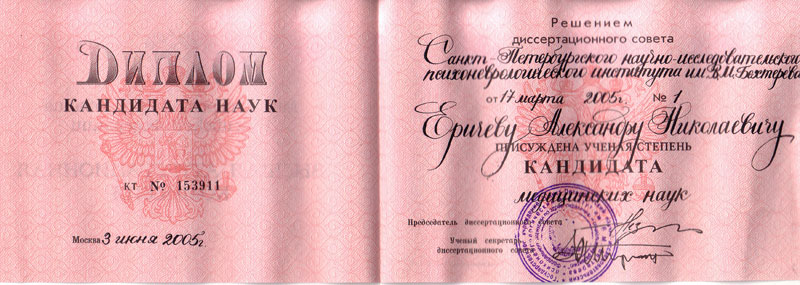 ДИПЛОМ
КАНДИДАТА НАУК
КТ № 153911
Москва 3 июня 2005г.
Решением
диссертационного совета
Санкт-Петербургского научно-исследовательского
психоневрологического института им. В.М. Бехтерева
от 17 марта 2005г. № 1
Еричеву Александру Николаевичу
ПРИСУЖДЕНА УЧЕНАЯ СТЕПЕНЬ
КАНДИДАТА
медицинских наук
Председатель диссертационного совета
Ученый секретарь
диссертационного совета